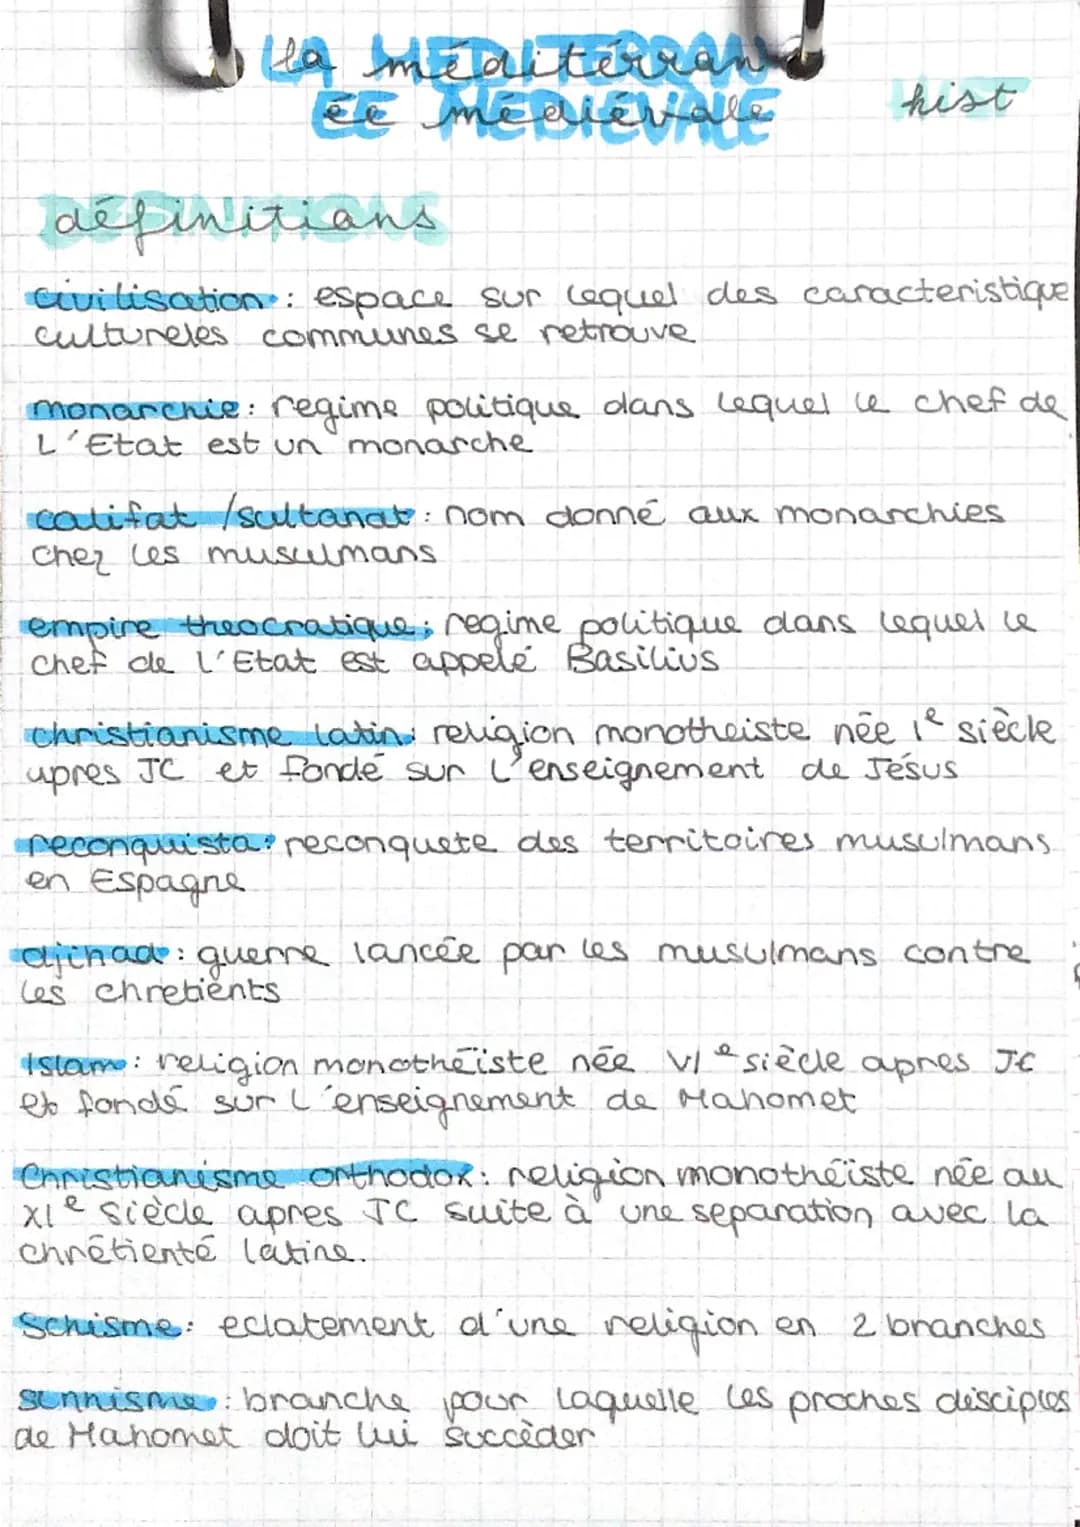 la méditérran
ée médiévale
hist
définitions
civilisation : espace sur lequel des caracteristique
cultureles communes se retrouve
monarchie : regime politique dans lequel le chef de
L'Etat est un monarche
califat / sultanat : nom donné aux monarchies
chez les musulmans
empire theocratique : regime politique dans lequel le
chef de l'Etat est appelé Basilius
christianisme latin : religion monotheiste née 1e siècle
apres JC et fondé sur l'enseignement de Jésus
reconquista : reconquete des territoires musulmans
en Espagne
djihad : guerre lancée par les musulmans contre
les chretients
Islam : religion monothéiste née VIe siècle apres JC
et fondé sur l'enseignement de Mahomet
Christianisme orthodox : religion monothéiste née au
XIe siècle apres JC suite à une separation avec la
chrétienté latine.
Schisme : eclatement d'une religion en 2 branches
sunnisme : branche pour laquelle les proches disciples
de Mahomet doit lui succèder